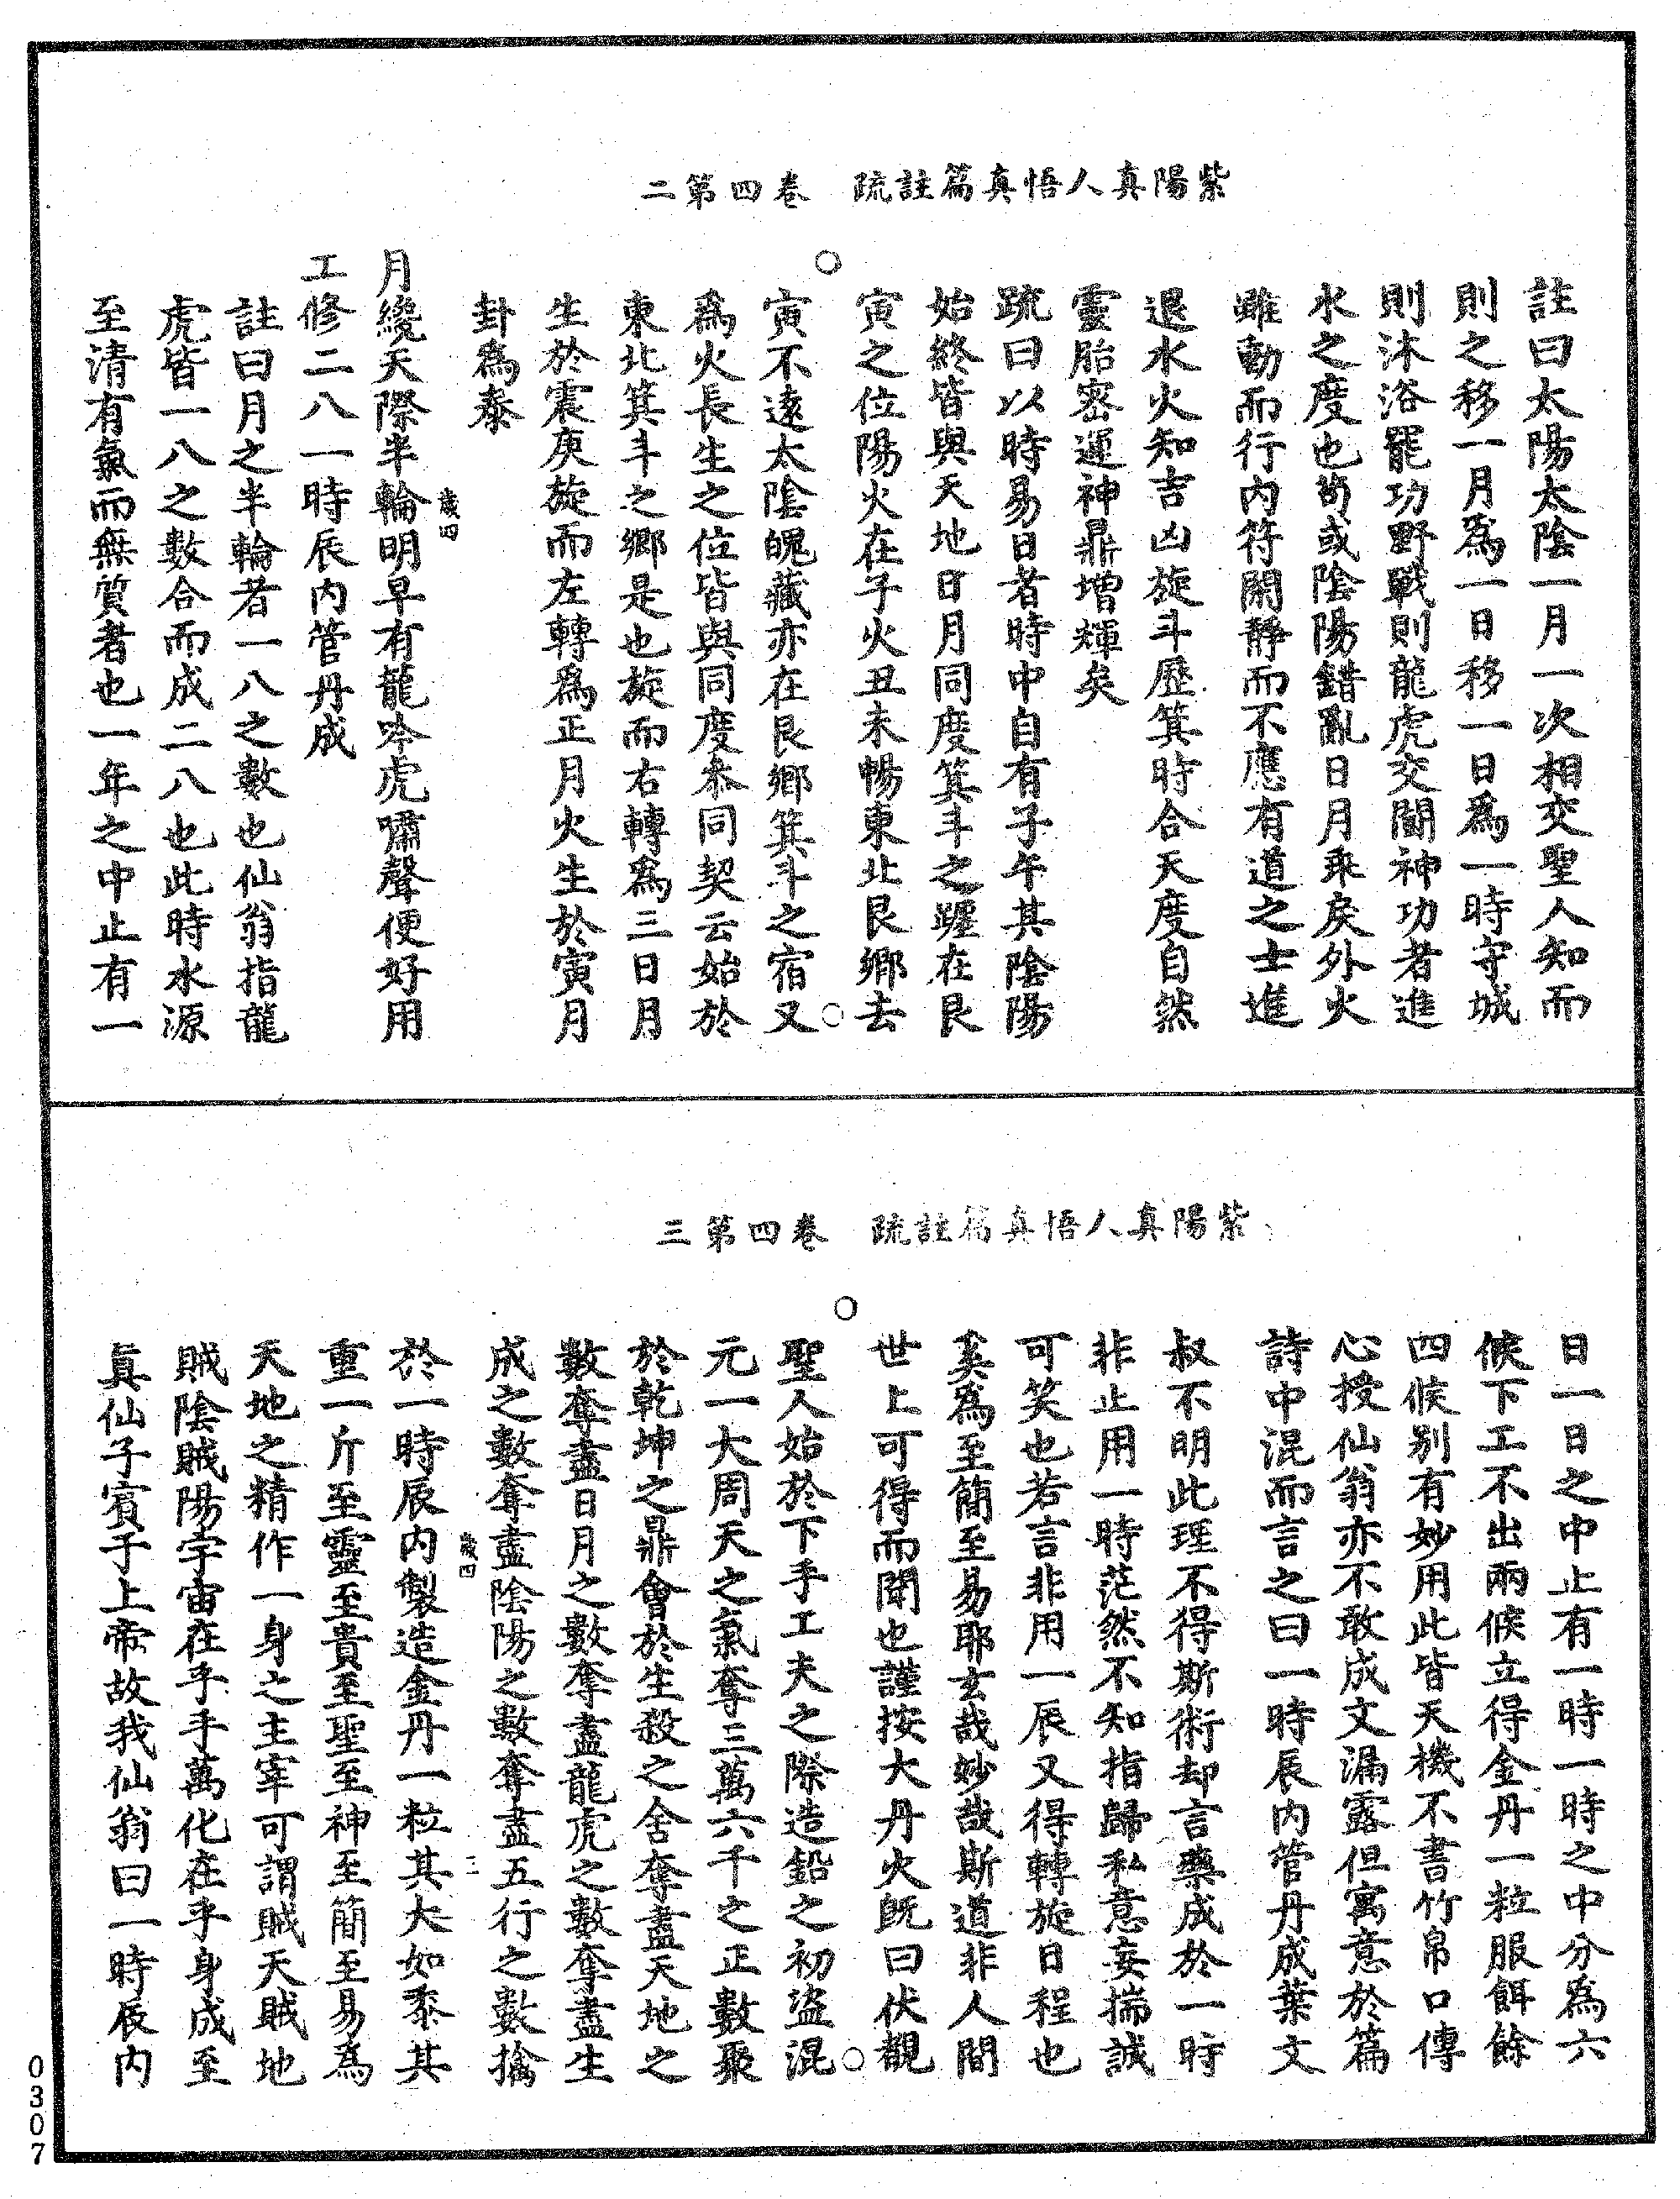 紫陽真人悟真篇註疏　卷四第二
註曰太陽太陰一月一次相交聖人知而
則之移一月爲一日移一日爲一時守城
則沐浴罷功野戰則龍虎交鬪神功者進
水之度也苟或陰陽錯亂日月乖戾外火
雖動而行內符閉靜而不應有道之士進
退水火知吉凶旋斗歷箕時合天度自然
靈胎密運神鼎增輝矣
疏曰以時易日者時中自有子午其陰陽
始終皆與天地日月同度箕斗之躔在艮
寅之位陽火在子火丑未暢東北艮鄉去
寅不遠太陰魄藏亦在艮鄉箕斗之宿又
爲火長生之位皆與同度叅同契云始於
東北箕斗之鄉是也旋而右轉爲三日月
生於震庚旋而左轉爲正月火生於寅月
卦爲泰
歲四
月纔天際半輪明早有龍吟虎嘯聲便好用
工修二八一時辰內管丹成
註曰月之半輪者一八之數也仙翁指龍
虎皆一八之數合而成二八也此時水源
至清有氣而無質者也一年之中止有一
紫陽真人悟真篇註疏　卷四第三
日一日之中止有一時一時之中分爲六
候下工不出兩候立得金丹一粒服餌餘
四候別有妙用此皆天機不書竹帛口傳
心授仙翁亦不敢成文漏露但寓意於篇
詩中混而言之曰一時辰內管丹成葉文
叔不明此理不得斯術却言藥成於一時
非止用一時茫然不知指歸私意妄揣誠
可笑也若言非用一辰又得轉旋日程也
奚爲至簡至易耶玄哉妙哉斯道非人間
世上可得而聞也謹按大丹火既曰伏觀
聖人始於下手工夫之際造鉛之初盜混
元一大周天之氣奪三萬六千之正數聚
於乾坤之鼎會於生殺之舍奪盡天地之
數奪盡日月之數奪盡龍虎之數奪盡生
成之數奪盡陰陽之數奪盡五行之數擒
歲四
三
於一時辰內製造金丹一粒其大如黍其
重一斤至靈至貴至聖至神至簡至易爲
天地之精作一身之主宰可謂賊天賊地
賊陰賊陽宇宙在乎手萬化在乎身成至
真仙子賓于上帝故我仙翁曰一時辰內
0307